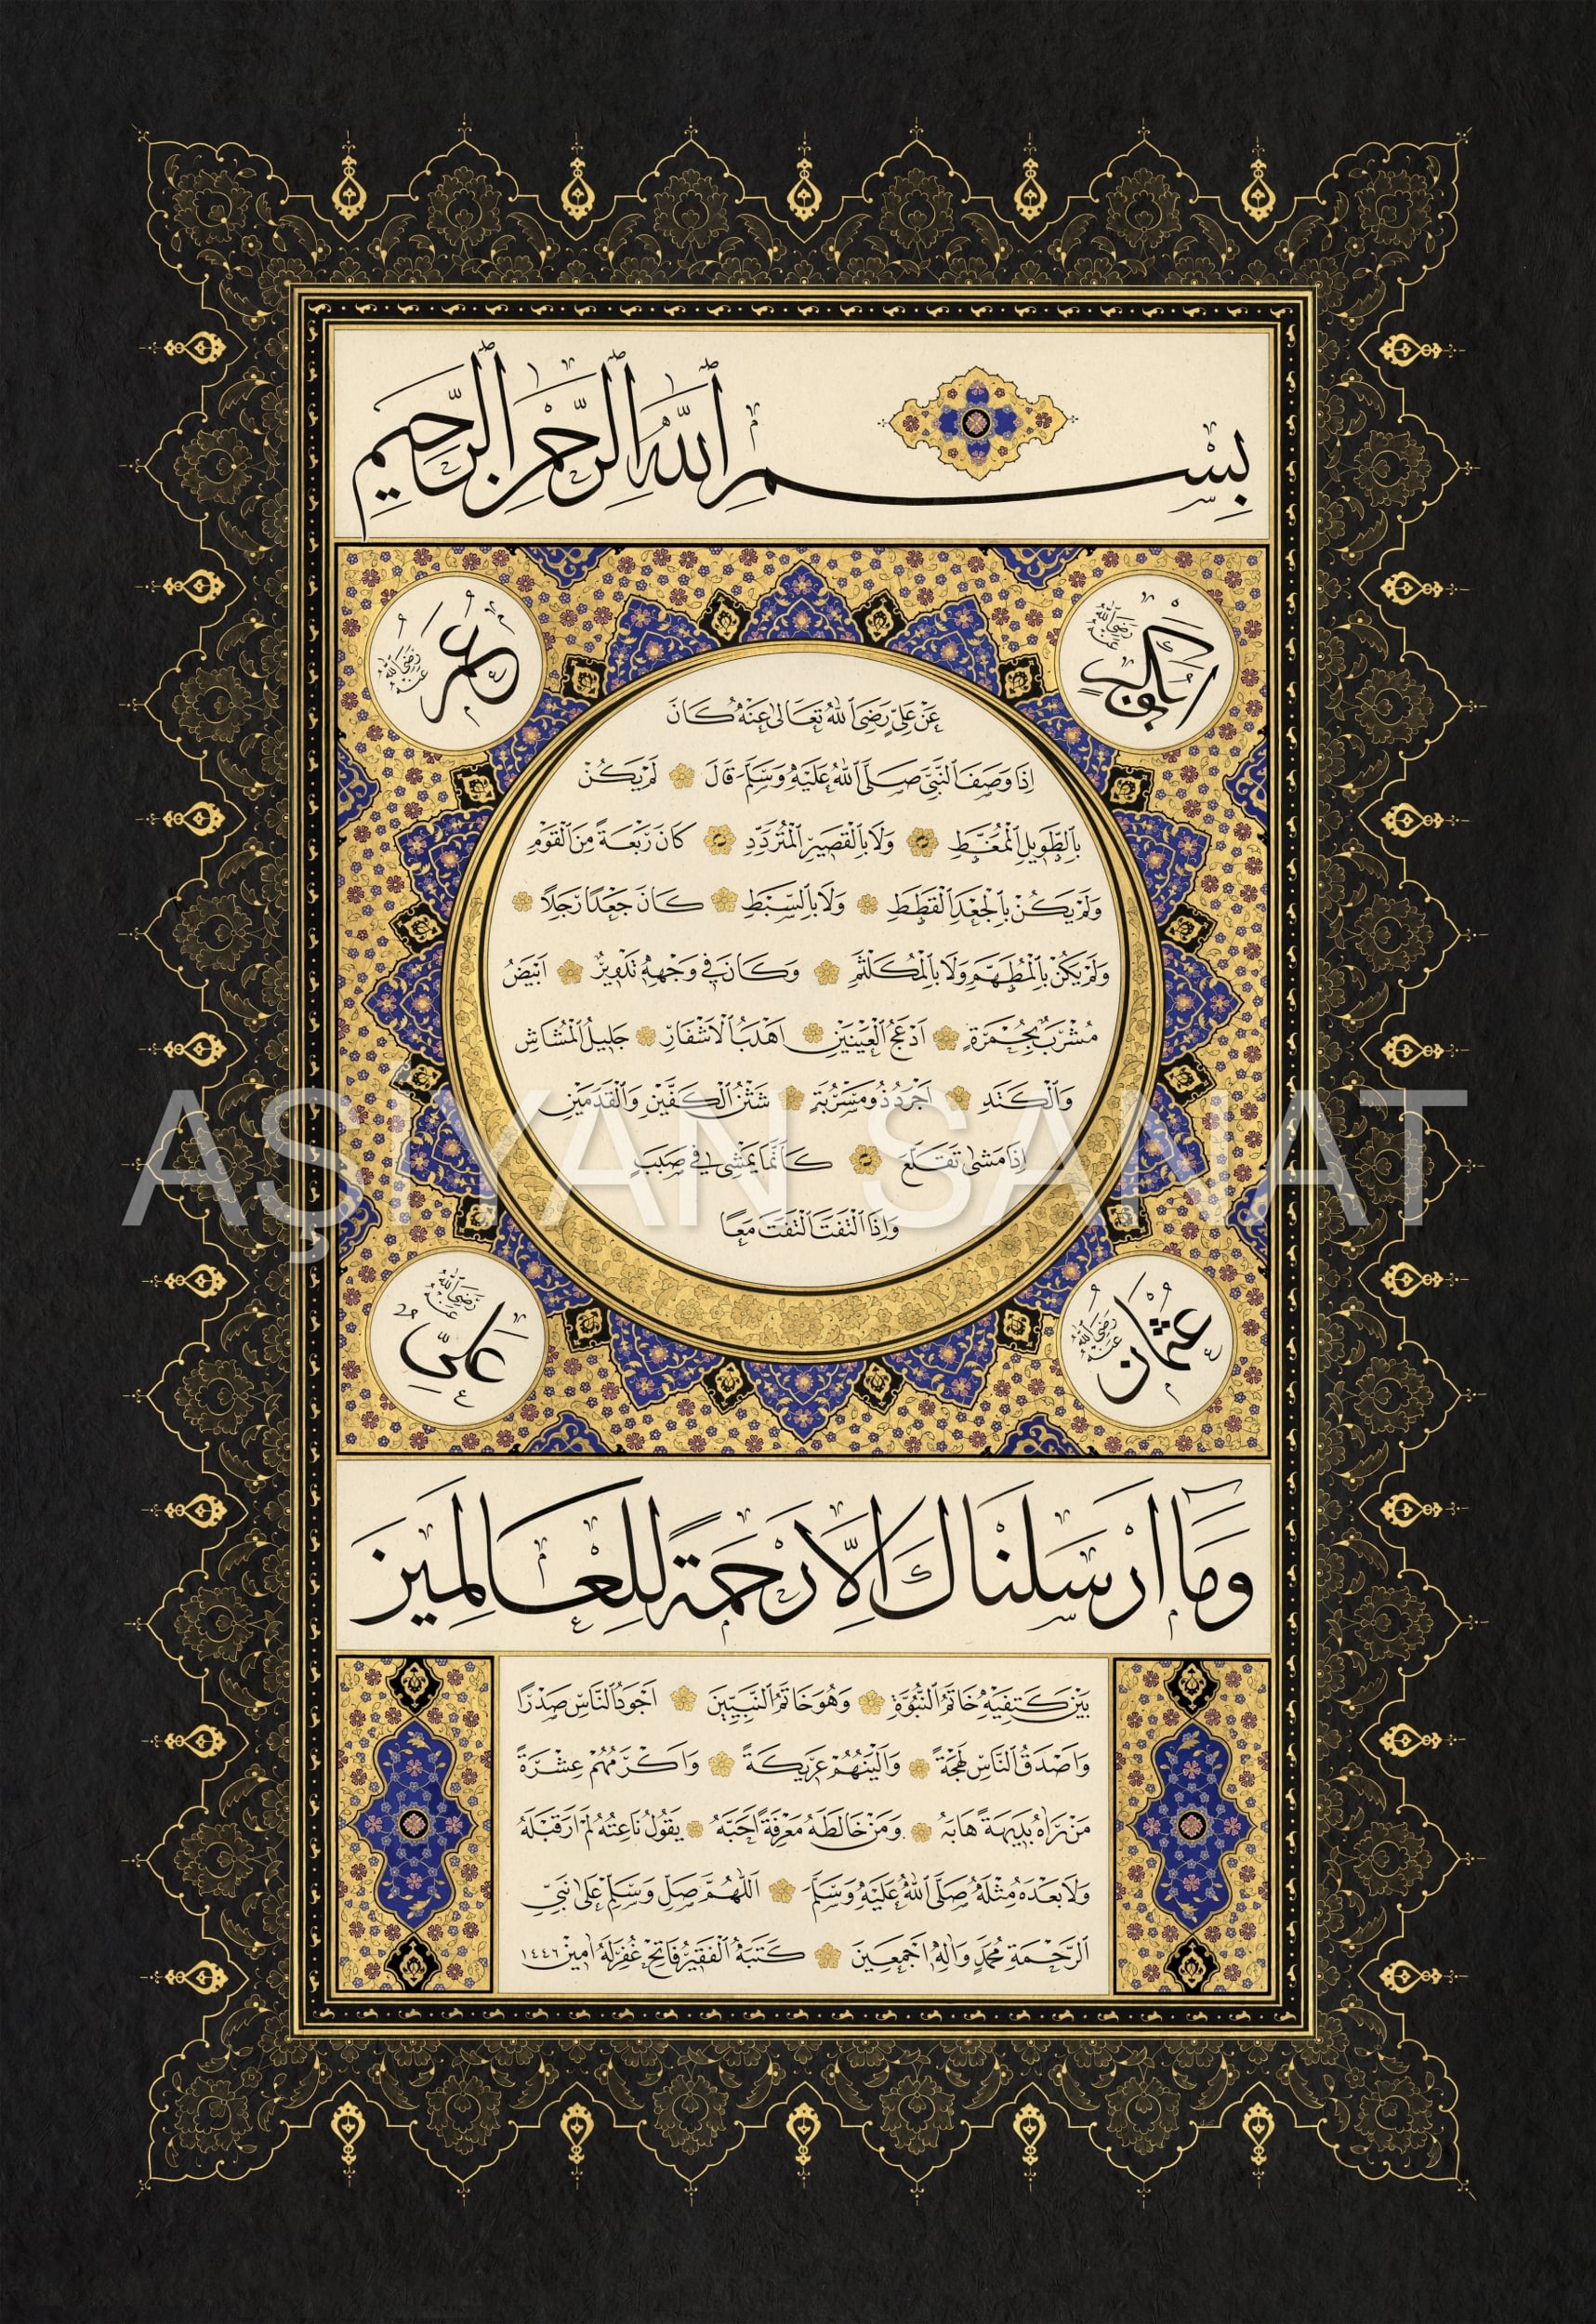 بِسْمِ اللّٰهِ الرَّحْمٰنِ الرَّحِيمِ
اَبُو بَكْرٍ رَضِيَ اللّٰهُ عَنْهُ
عُمَرُ رَضِيَ اللّٰهُ عَنْهُ
عَنْ عَلِيٍّ رَضِيَ اللّٰهُ تَعَالٰى عَنْهُ كَانَ
اِذَا وَصَفَ النَّبِيَّ صَلَّى اللّٰهُ عَلَيْهِ وَسَلَّمَ قَالَ لَمْ يَكُنْ
بِالطَّوِيلِ الْمُمَغَّطِ وَلَا بِالْقَصِيرِ الْمُتَرَدِّدِ كَانَ رَبْعَةً مِنَ الْقَوْمِ
وَلَمْ يَكُنْ بِالْجَعْدِ الْقَطَطِ وَلَا بِالسَّبْطِ كَانَ جَعْدًا رَجِلًا
وَلَمْ يَكُنْ بِالْمُطَهَّمِ وَلَا بِالْمُكَلْثَمِ وَكَانَ فِي وَجْهِهِ تَدْوِيرٌ اَبْيَضُ
مُشْرَبٌ بِحُمْرَةٍ اَدْعَجُ الْعَيْنَيْنِ اَهْدَبُ الْاَشْفَارِ جَلِيلُ الْمُشَاشِ
وَالْكَتَدِ اَجْرَدُ ذُو مَسْرُبَةٍ شَثْنُ الْكَفَّيْنِ وَالْقَدَمَيْنِ
اِذَا مَشٰى تَقَلَّعَ كَاَنَّمَا يَمْشِي فِي صَبَبٍ
وَاِذَا الْتَفَتَ الْتَفَتَ مَعًا
AŞİYAN SANAT
عُثْمَانُ رَضِيَ اللّٰهُ عَنْهُ
عَلِيٌّ رَضِيَ اللّٰهُ عَنْهُ
وَمَا اَرْسَلْنَاكَ اِلَّا رَحْمَةً لِلْعَالَمِينَ
بَيْنَ كَتِفَيْهِ خَاتَمُ النُّبُوَّةِ وَهُوَ خَاتَمُ النَّبِيِّينَ اَجْوَدُ النَّاسِ صَدْرًا
وَاَصْدَقُ النَّاسِ لَهْجَةً وَاَلْيَنُهُمْ عَرِيكَةً وَاَكْرَمُهُمْ عِشْرَةً
مَنْ رَاٰهُ بَدِيهَةً هَابَهُ وَمَنْ خَالَطَهُ مَعْرِفَةً اَحَبَّهُ يَقُولُ نَاعِتُهُ لَمْ اَرَ قَبْلَهُ
وَلَا بَعْدَهُ مِثْلَهُ صَلَّى اللّٰهُ عَلَيْهِ وَسَلَّمَ اَللّٰهُمَّ صَلِّ وَسَلِّمْ عَلٰى نَبِيِّ
الرَّحْمَةِ مُحَمَّدٍ وَاٰلِهِ اَجْمَعِينَ كَتَبَهُ الْفَقِيرُ فَاتِحْ غُفِرَ لَهُ اٰمِينْ ١٤٤٦